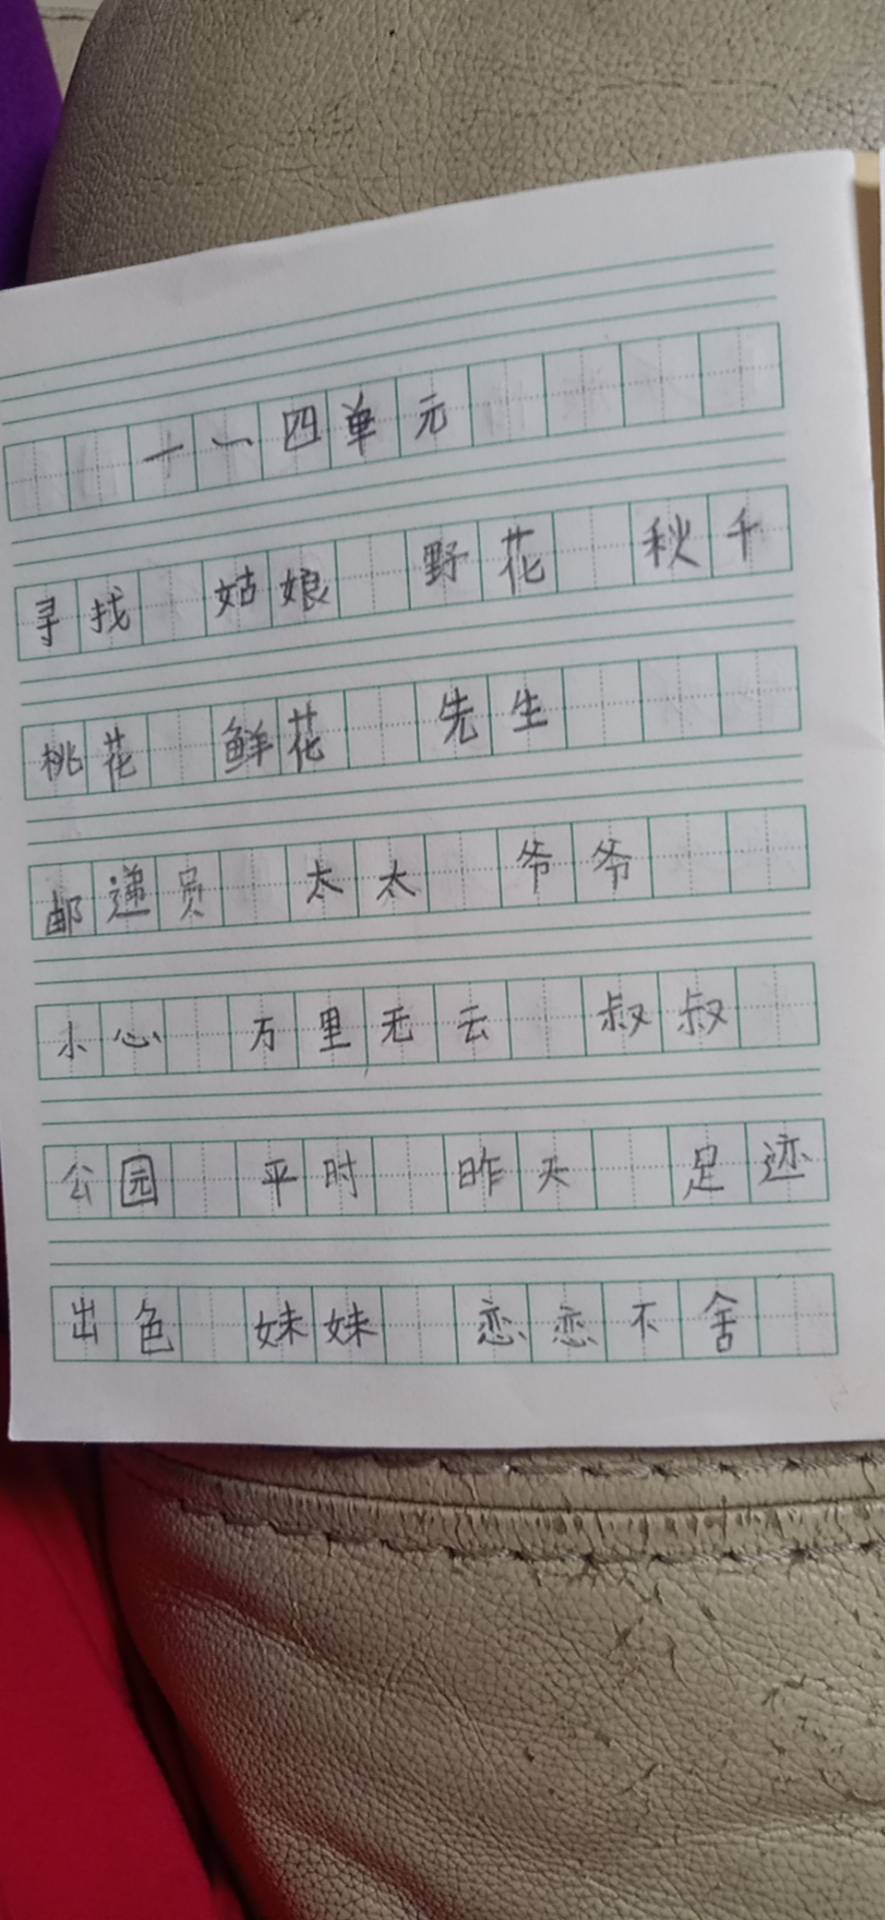 一一四单元
寻找 姑娘 野花 秋千
桃花 鲜花 先生
邮递员 太太 爷爷
小心 万里无云 叔叔
公园 平时 昨天 足迹
出色 妹妹 恋恋不舍